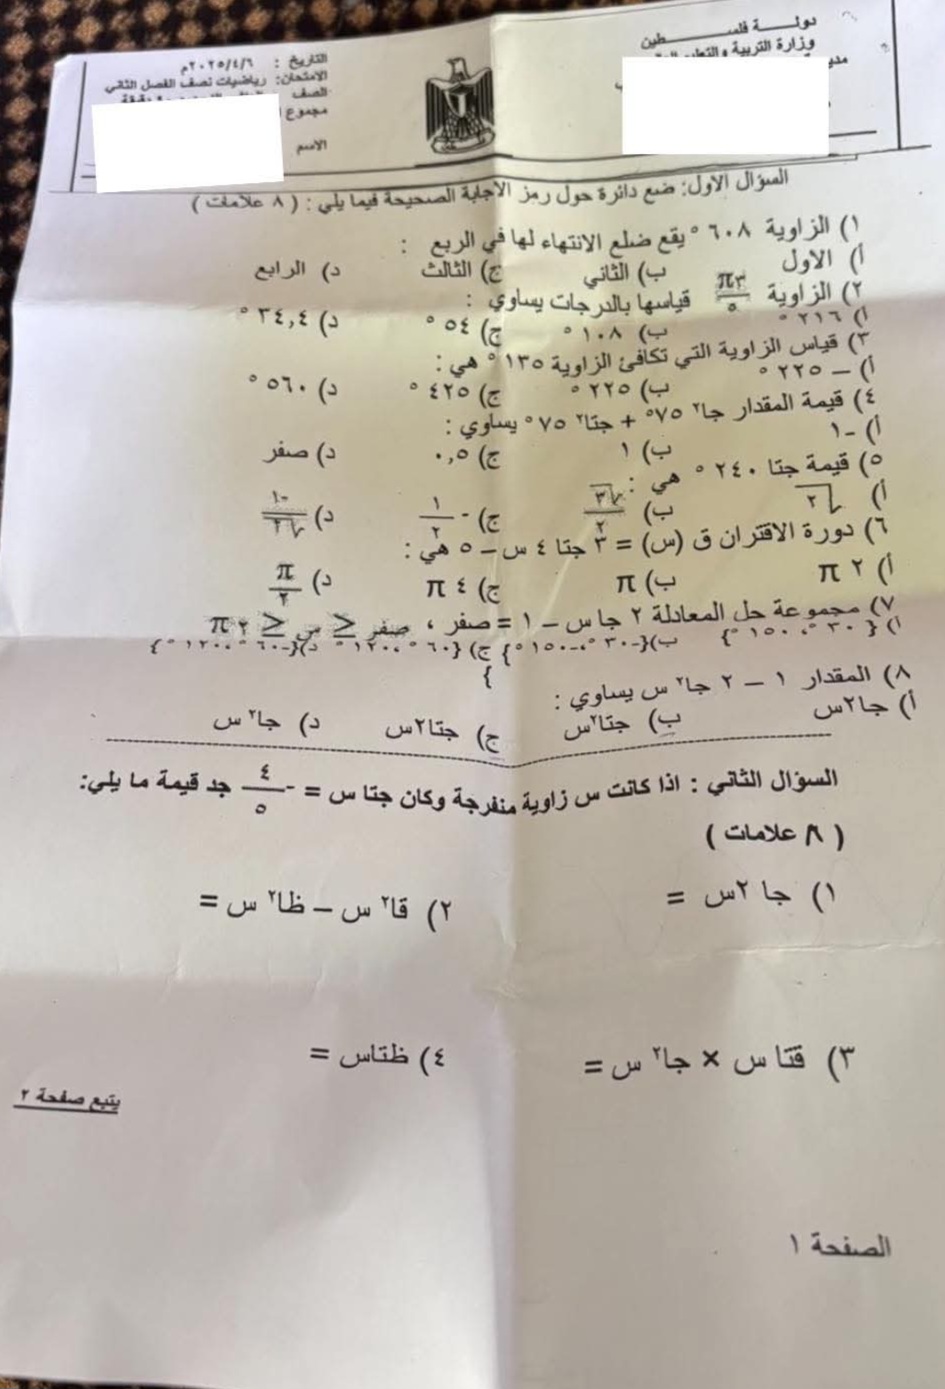 دولـــــة فلســـــــــطين
وزارة التربية والتعليم
التاريخ : ٢٠٢٥/٤/٦م
الامتحان: رياضيات نصف الفصل الثاني
الصف
مجموع
الاسم
السؤال الاول: ضع دائرة حول رمز الاجابة الصحيحة فيما يلي : ( ٨ علامات )
١) الزاوية ٦٠٨ ° يقع ضلع الانتهاء لها في الربع :
أ) الاول ب) الثاني ج) الثالث د) الرابع
٢) الزاوية π٣/٥ قياسها بالدرجات يساوي :
أ) ٢١٦ ° ب) ١٠٨ ° ج) ٥٤ ° د) ٣٤,٤ °
٣) قياس الزاوية التي تكافئ الزاوية ١٣٥ ° هي :
أ) – ٢٢٥ ° ب) ٢٢٥ ° ج) ٤٢٥ ° د) ٥٦٠ °
٤) قيمة المقدار جا٢ ٧٥° + جتا٢ ٧٥ ° يساوي :
أ) -١ ب) ١ ج) ٠,٥ د) صفر
٥) قيمة جتا ٢٤٠ ° هي :
أ) √٢ ب) √٣/٢ ج) -١/٢ د) -١/√٢
٦) دورة الاقتران ق (س) = ٣ جتا ٤ س – ٥ هي :
أ) ٢ π ب) π ج) ٤ π د) π/٢
٧) مجموعة حل المعادلة ٢ جاس – ١ = صفر ، صفر ≤ س ≤ ٢ π
أ) { ٣٠ °، ١٥٠ °} ب){-٣٠ °،-١٥٠ °} ج) {٦٠ °، ١٢٠ ° د){-٦٠ °،-١٢٠ °}
}
٨) المقدار ١ – ٢ جا٢ س يساوي :
أ) جا٢س ب) جتا٢س ج) جتا٢س د) جا٢ س
السؤال الثاني : اذا كانت س زاوية منفرجة وكان جتا س = -٤/٥ جد قيمة ما يلي:
( ٨ علامات )
١) جا ٢س =
٢) قا٢ س – ظا٢ س =
٣) قتا س × جا٢ س =
٤) ظتاس =
يتبع صفحة ٢
الصفحة ١